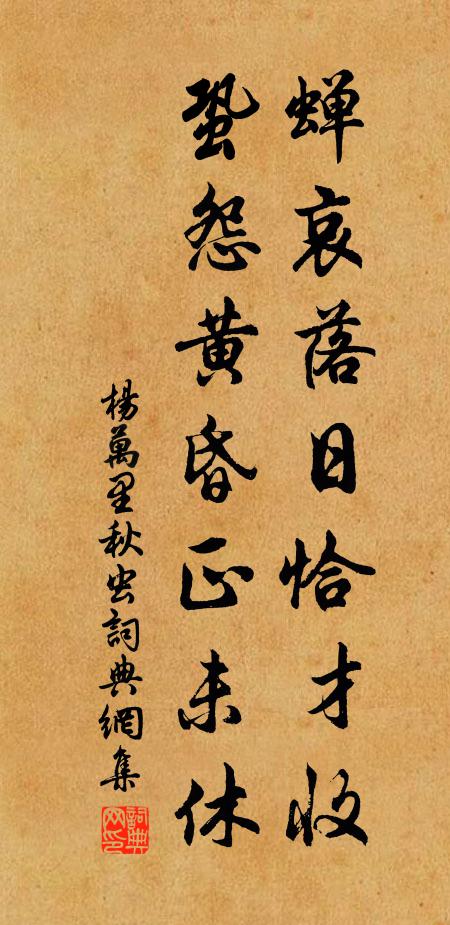 蝉哀落日恰才收
蛩怨黄昏正未休
楊萬里秋虫詞典網集
詞典網印